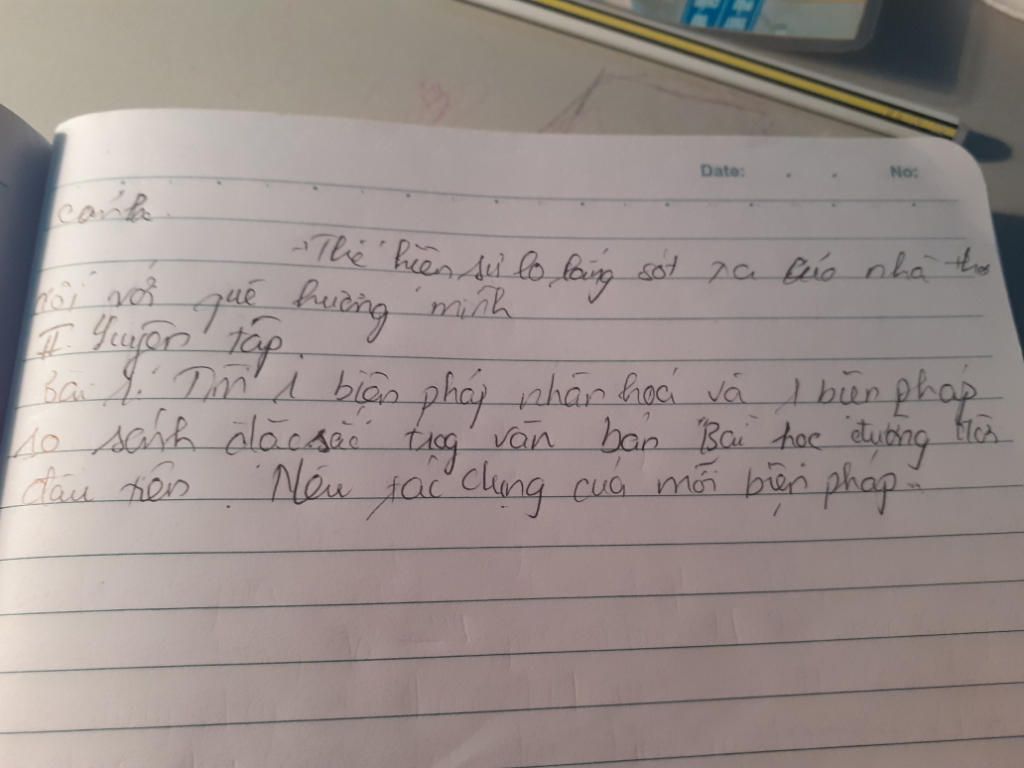 Date: . . No:
cảnh
→ Thể hiện sự lo lắng sót xa của nhà thơ
với quê hương mình
II Luyện tập.
Bài 1: Tìm 1 biện pháp nhân hoá và 1 biện pháp
so sánh đặc sắc trog văn bản Bài học đường đời
đầu tiên. Nêu tác dụng của mỗi biện pháp.